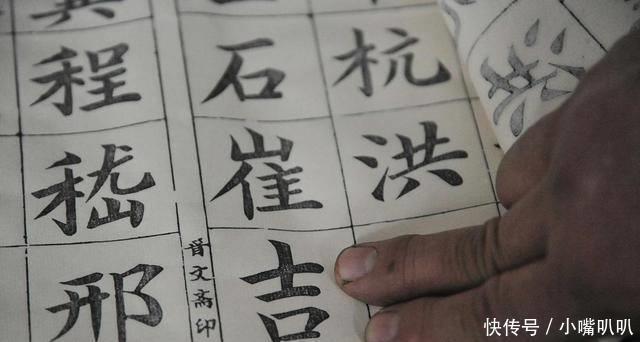 杭洪
石崔吉
晋文斋印
程嵇邢
快传号／小嘴叭叭